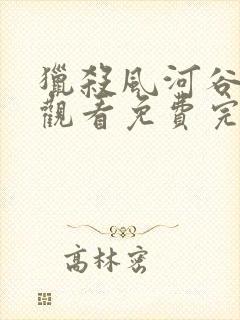 獵殺風河谷
觀看免費完
高林密